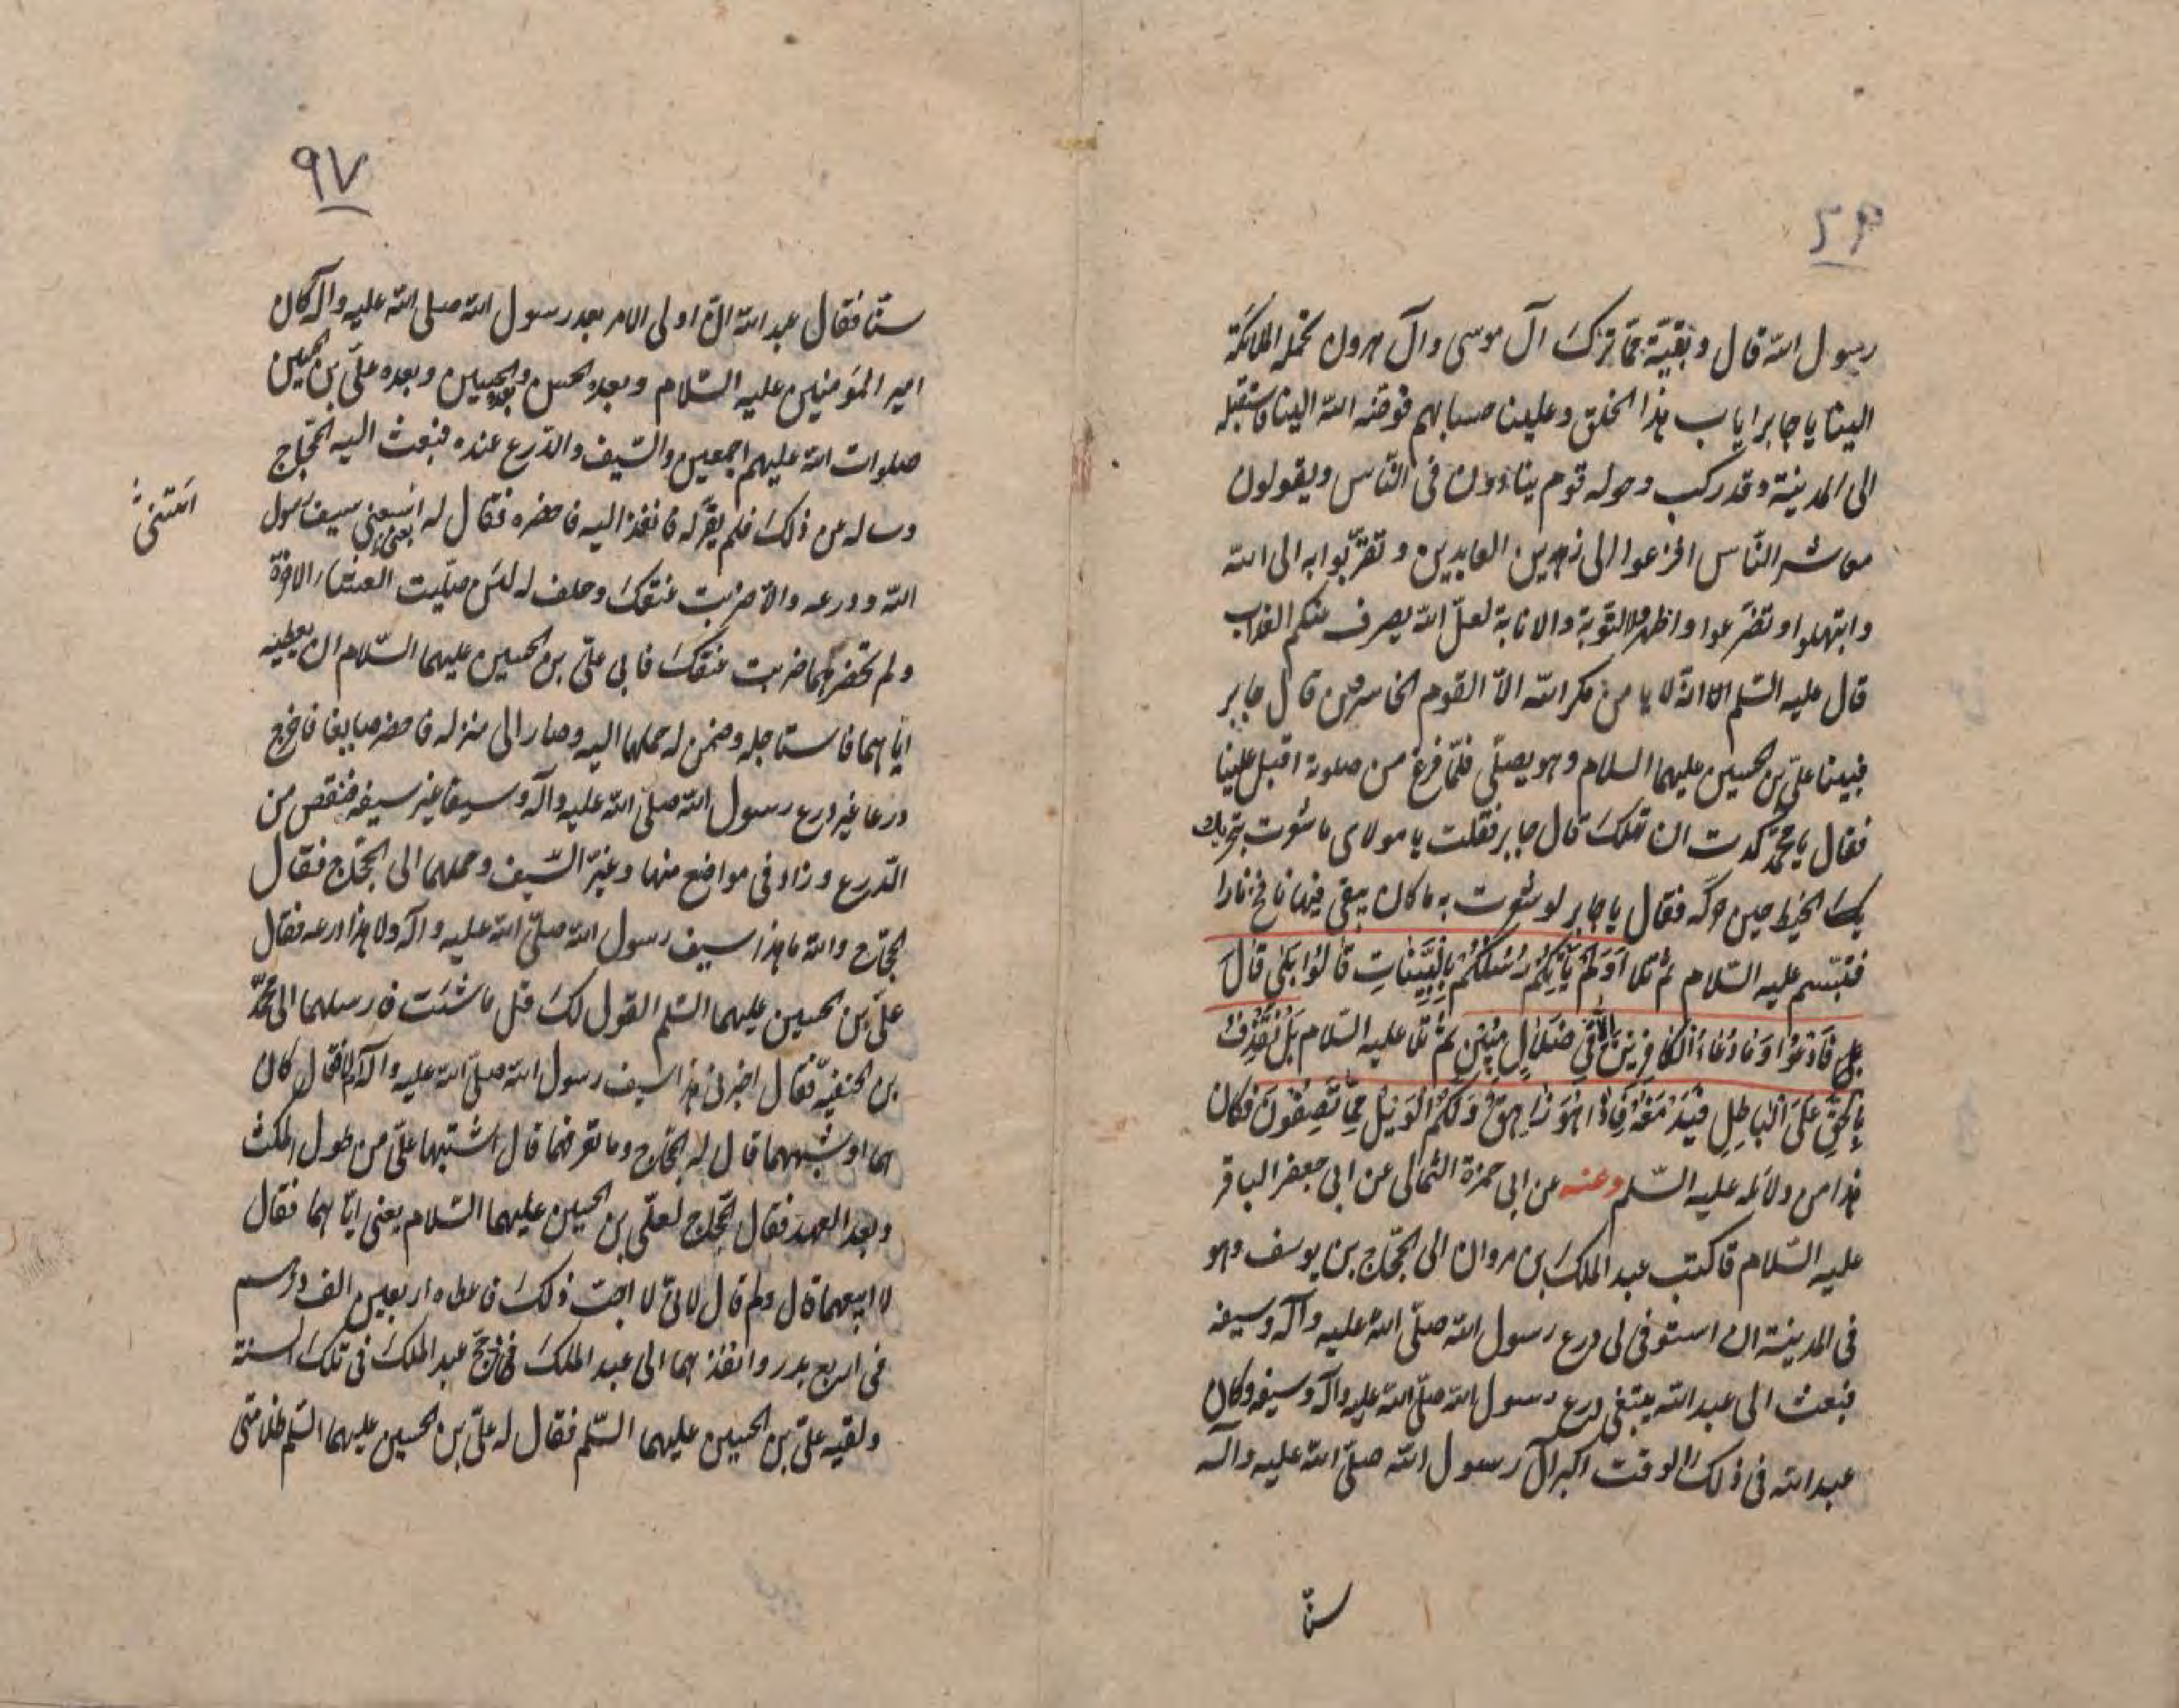 رسول الله قال وبقيّة ممّا ترك آل موسى وآل هرون تحمله الملائكة
الينا يا جابر اياب هذا الخلق وعلينا حسابهم فوضه الله الينا فاستقبله
الى المدينة وقد ركب وحوله قوم ينادون فى الناس ويقولون
معاشر النّاس افزعوا الى زين العابدين وتقرّبوا به الى الله
وابتهلوا وتضرّعوا واظهروا التوبة والانابة لعلّ الله يصرف عنكم العذاب
قال عليه السّلم الا انّه لا يامن مكر الله الاّ القوم الخاسرون قال جابر
فبينا علىّ بن الحسين عليهما السلام وهو يصلّى فلمّا فرغ من صلوته اقبل علينا
فقال يا محمّد كدت ان تهلك قال جابر فقلت يا مولاى ما شعرت بتحريك
يك الخيط حين حركه فقال يا جابر لو شعرت به ما كان يبقى فيها نافخ نارا
فتبسّم عليه السّلام ثم تلا اَوَلَمْ يَأْتِكُمْ رُسُلُكُمْ بِالْبَيِّنَاتِ قَالُوا بَلَى قَالَ
بلى فَادْعُوا وَمَا دُعَاءُ الْكَافِرِينَ اِلاّ فِي ضَلالٍ مبين ثم تلا عليه السّلام بَلْ نَقْذِفُ
بِالْحَقِّ عَلَى الْبَاطِلِ فَيَدْمَغُهُ فَاِذَا هُوَ زَاهِقٌ وَلَكُمُ الْوَيْلُ مِمَّا تَصِفُونَ فكان
هذا من دلائله عليه السّلم وعنه عن ابى حمزة الثمالى عن ابى جعفر الباقر
عليه السّلام قا كتب عبد الملك بن مروان الى الحجّاج بن يوسف وهو
فى المدينة ان استوفى لى درع رسول الله صلّى الله عليه وآله وسيفه
فبعث الى عبد الله يبتغى درع رسول الله صلّى الله عليه وآله وسيفه وكان
عبد الله فى ذلك الوقت اكبر آل رسول الله صلّى الله عليه وآله
سنّا
٩٧
سنّا فقال عبد الله انّ اولى الامر بعد رسول الله صلى الله عليه وآله كان
امير المؤمنين عليه السّلام وبعده الحسن وبعده الحسين وبعده علىّ بن الحسين
صلوات الله عليهم اجمعين والسّيف والدّرع عنده فبعث اليه الحجّاج
وساله عن ذلك فلم يقرّ له فانفذ اليه فاحضره فقال له بعنى سيف رسول
الله ودرعه والاّ ضربت عنقك وحلف له لئن صلّيت العشاء الاخرة
ولم تحضرهما ضربت عنقك فابى علىّ بن الحسين عليهما السّلام ان يعطيه
ايّاهما فاستاجله وضمن له حملهما اليه وصار الى منزله فاحضر صايغا فاخرج
درعا غير درع رسول الله صلّى الله عليه وآله وسيفا غير سيفه فنقص من
الدّرع وزاد فى مواضع منها وغيّر السّيف وحملهما الى الحجّاج فقال
الحجّاج والله ما هذا سيف رسول الله صلّى الله عليه وآله ولا هذا درعه فقال
علىّ بن الحسين عليهما السّلم القول لك قل ما شئت فارسلهما الى محمّد
بن الحنفيّة فقال اخبرنى هذا سيف رسول الله صلّى الله عليه وآله فقال كان
هما او شبههما قال له الحجّاج وما تعرفهما قال اشتبها علىّ من طول المكث
وبعد العهد فقال الحجّاج لعلّى بن الحسين عليهما السّلام بعنى ايّاهما فقال
لا ابيعهما قال ولم قال لانّى لا احبّ ذلك فاعطاه اربعين الف درهم
فى اربع بدر وانفذهما الى عبد الملك فحجّ عبد الملك فى تلك السنة
ولقيه علىّ بن الحسين عليهما السّلم فقال له علىّ بن الحسين عليهما السّلم ظلامتى